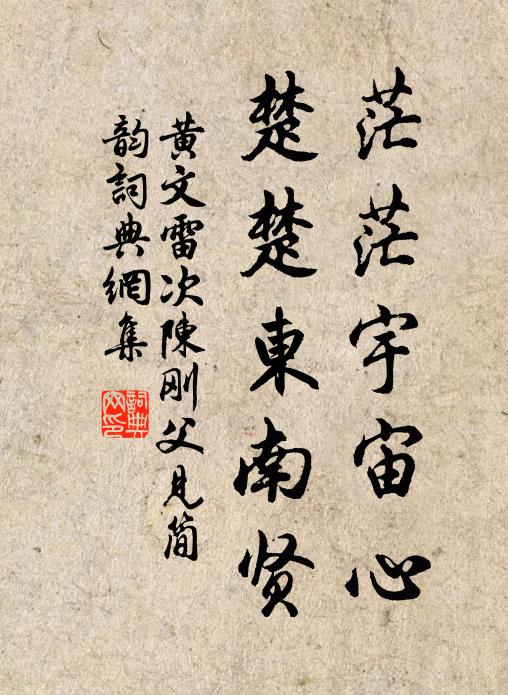 茫茫宇宙心
楚楚東南贤
黄文雷次陳刚父見简
韵詞典網集
詞典网印